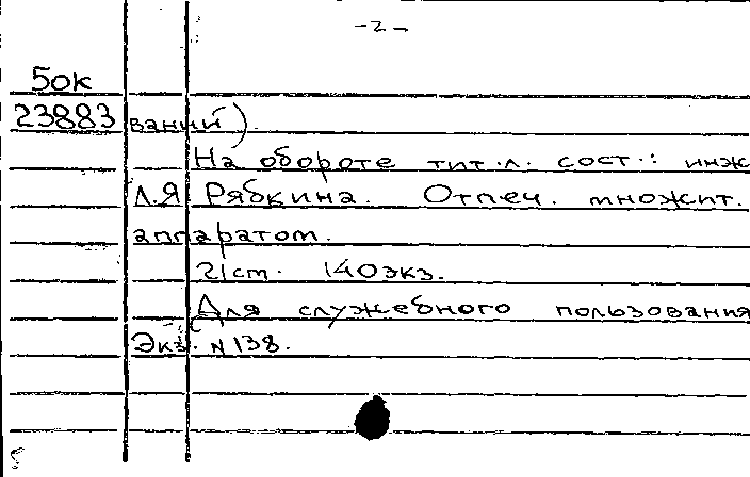 -2-
50к
23883 ваний).
На обороте тит.л. сост.: инж
Л.Я Рябкина. Отпеч. множит.
аппаратом.
21ст. 140экз.
Для служебного пользования
Экз. N 138.